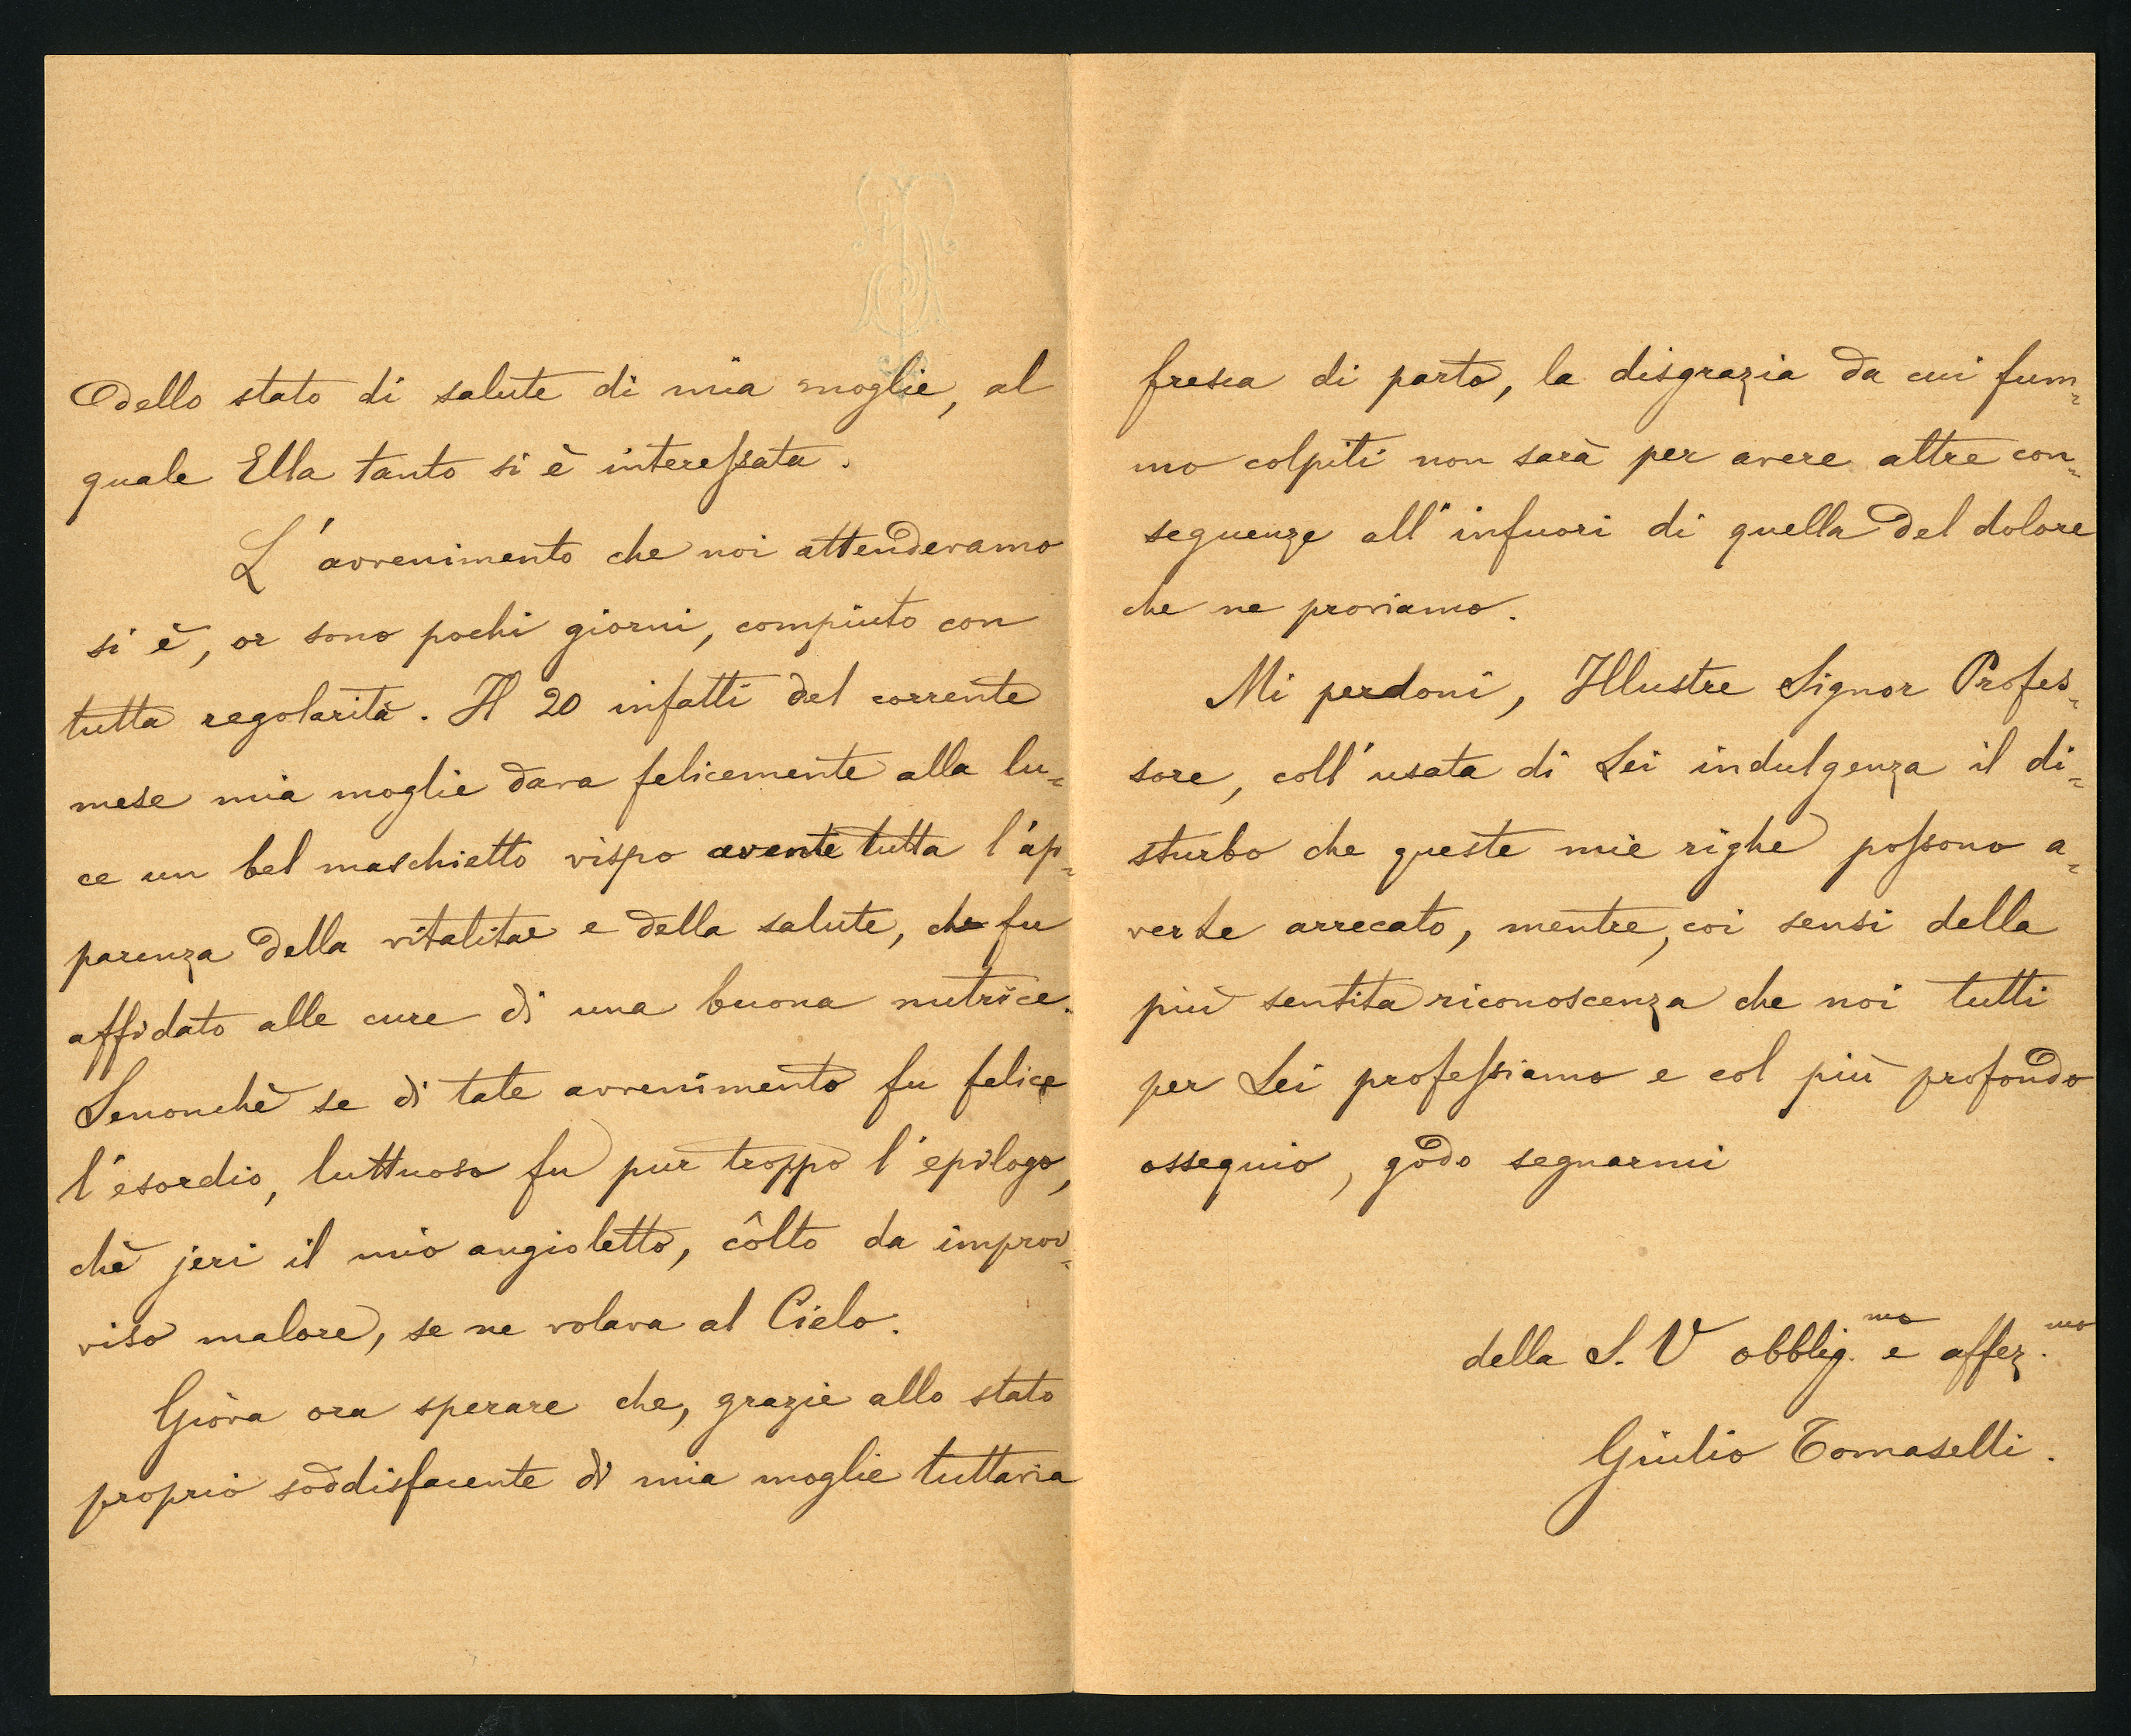 dello stato di salute di mia moglie, al
quale Ella tanto si è interessata.
L'avvenimento che noi attendevamo
si è, or sono pochi giorni, compiuto con
tutta regolarità. Il 20 infatti del corrente
mese mia moglie dava felicemente alla lu=
ce un bel maschietto vispo avente tutta l'ap=
parenza della vitalità e della salute, che fu
affidato alle cure di una buona nutrice.
Senonchè se di tale avvenimento fu felice
l'esordio, luttuoso fu pur troppo l'epilogo,
chè jeri il mio angioletto, côlto da improv=
viso malore, se ne volava al Cielo.
Giova ora sperare che, grazie allo stato
proprio soddisfacente di mia moglie tuttavia
fresca di parto, la disgrazia da cui fum=
mo colpiti non sarà per avere altre con=
seguenze all'infuori di quella del dolore
che ne proviamo.
Mi perdoni, Illustre Signor Profes=
sore, coll'usata di Lei indulgenza il di=
sturbo che queste mie righe possono a=
verle arrecato, mentre, coi sensi della
più sentita riconoscenza che noi tutti
per Lei professiamo e col più profondo
ossequio, godo segnarmi
della S. V obblig.mo e affez.mo
Giulio Tomaselli.